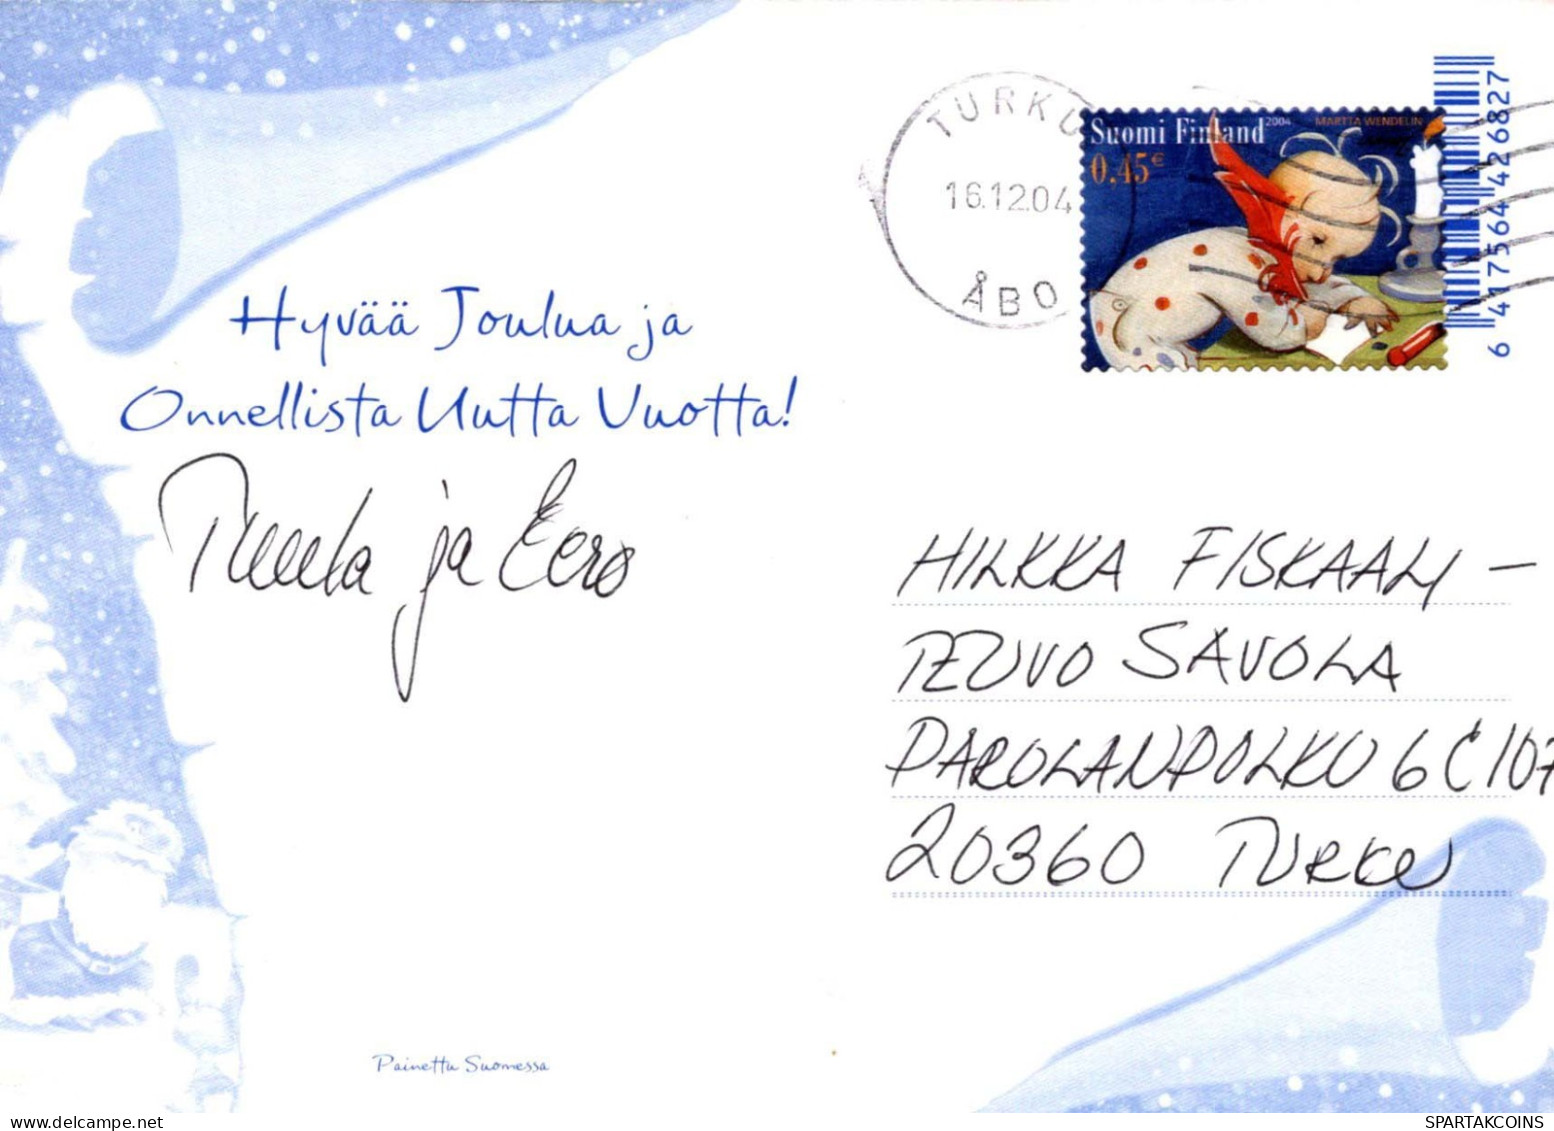 Hyvää Joulua ja
Onnellista Uutta Vuotta!
ja Eero
Painettu Suomessa
TURKU
16.12.04
ÅBO
Suomi Finland 2004 MARTTA WENDELIN
0,45€
6 417564 426827
HILKKA FISKAALI –
TEUVO SAVOLA
PAROLANPOLKU 6 C 107
20360 TURKU
delcampe.net
SPARTAKCOINS